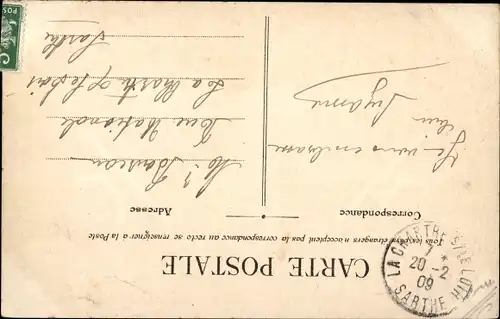 CARTE POSTALE
Tous les pays étrangers n'acceptent pas la correspondance au recto se renseigner à la Poste
Correspondance
Adresse
LA CHARTRE S/ LE LOIR
7 *
20 -2
09
SARTHE
Je vous embrasse
bien
Suzanne
Mr
Rue Nationale
La Chartre s/ le Loir
Sarthe